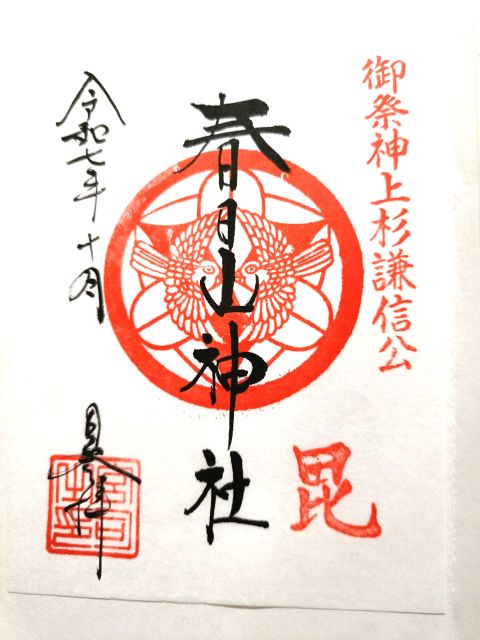 御祭神上杉謙信公
毘
春日山神社
令和七年十月